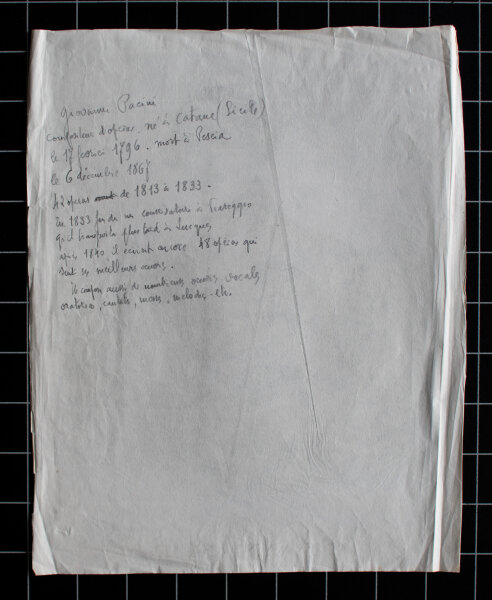 Giovanni Pacini
compositeur d'opéras, né à Catane (Sicile)
le 17 février 1796. mort à Pescia
le 6 décembre 1867
42 opéras de 1813 à 1833.
En 1833 fonde un conservatoire à Viareggio
qu'il transporta plus tard à Lucques
après 1840 il écrivit encore 48 opéras qui
sont ses meilleurs œuvres.
Il composa aussi de nombreuses œuvres vocales
oratorios, cantates, messes, mélodies - etc.